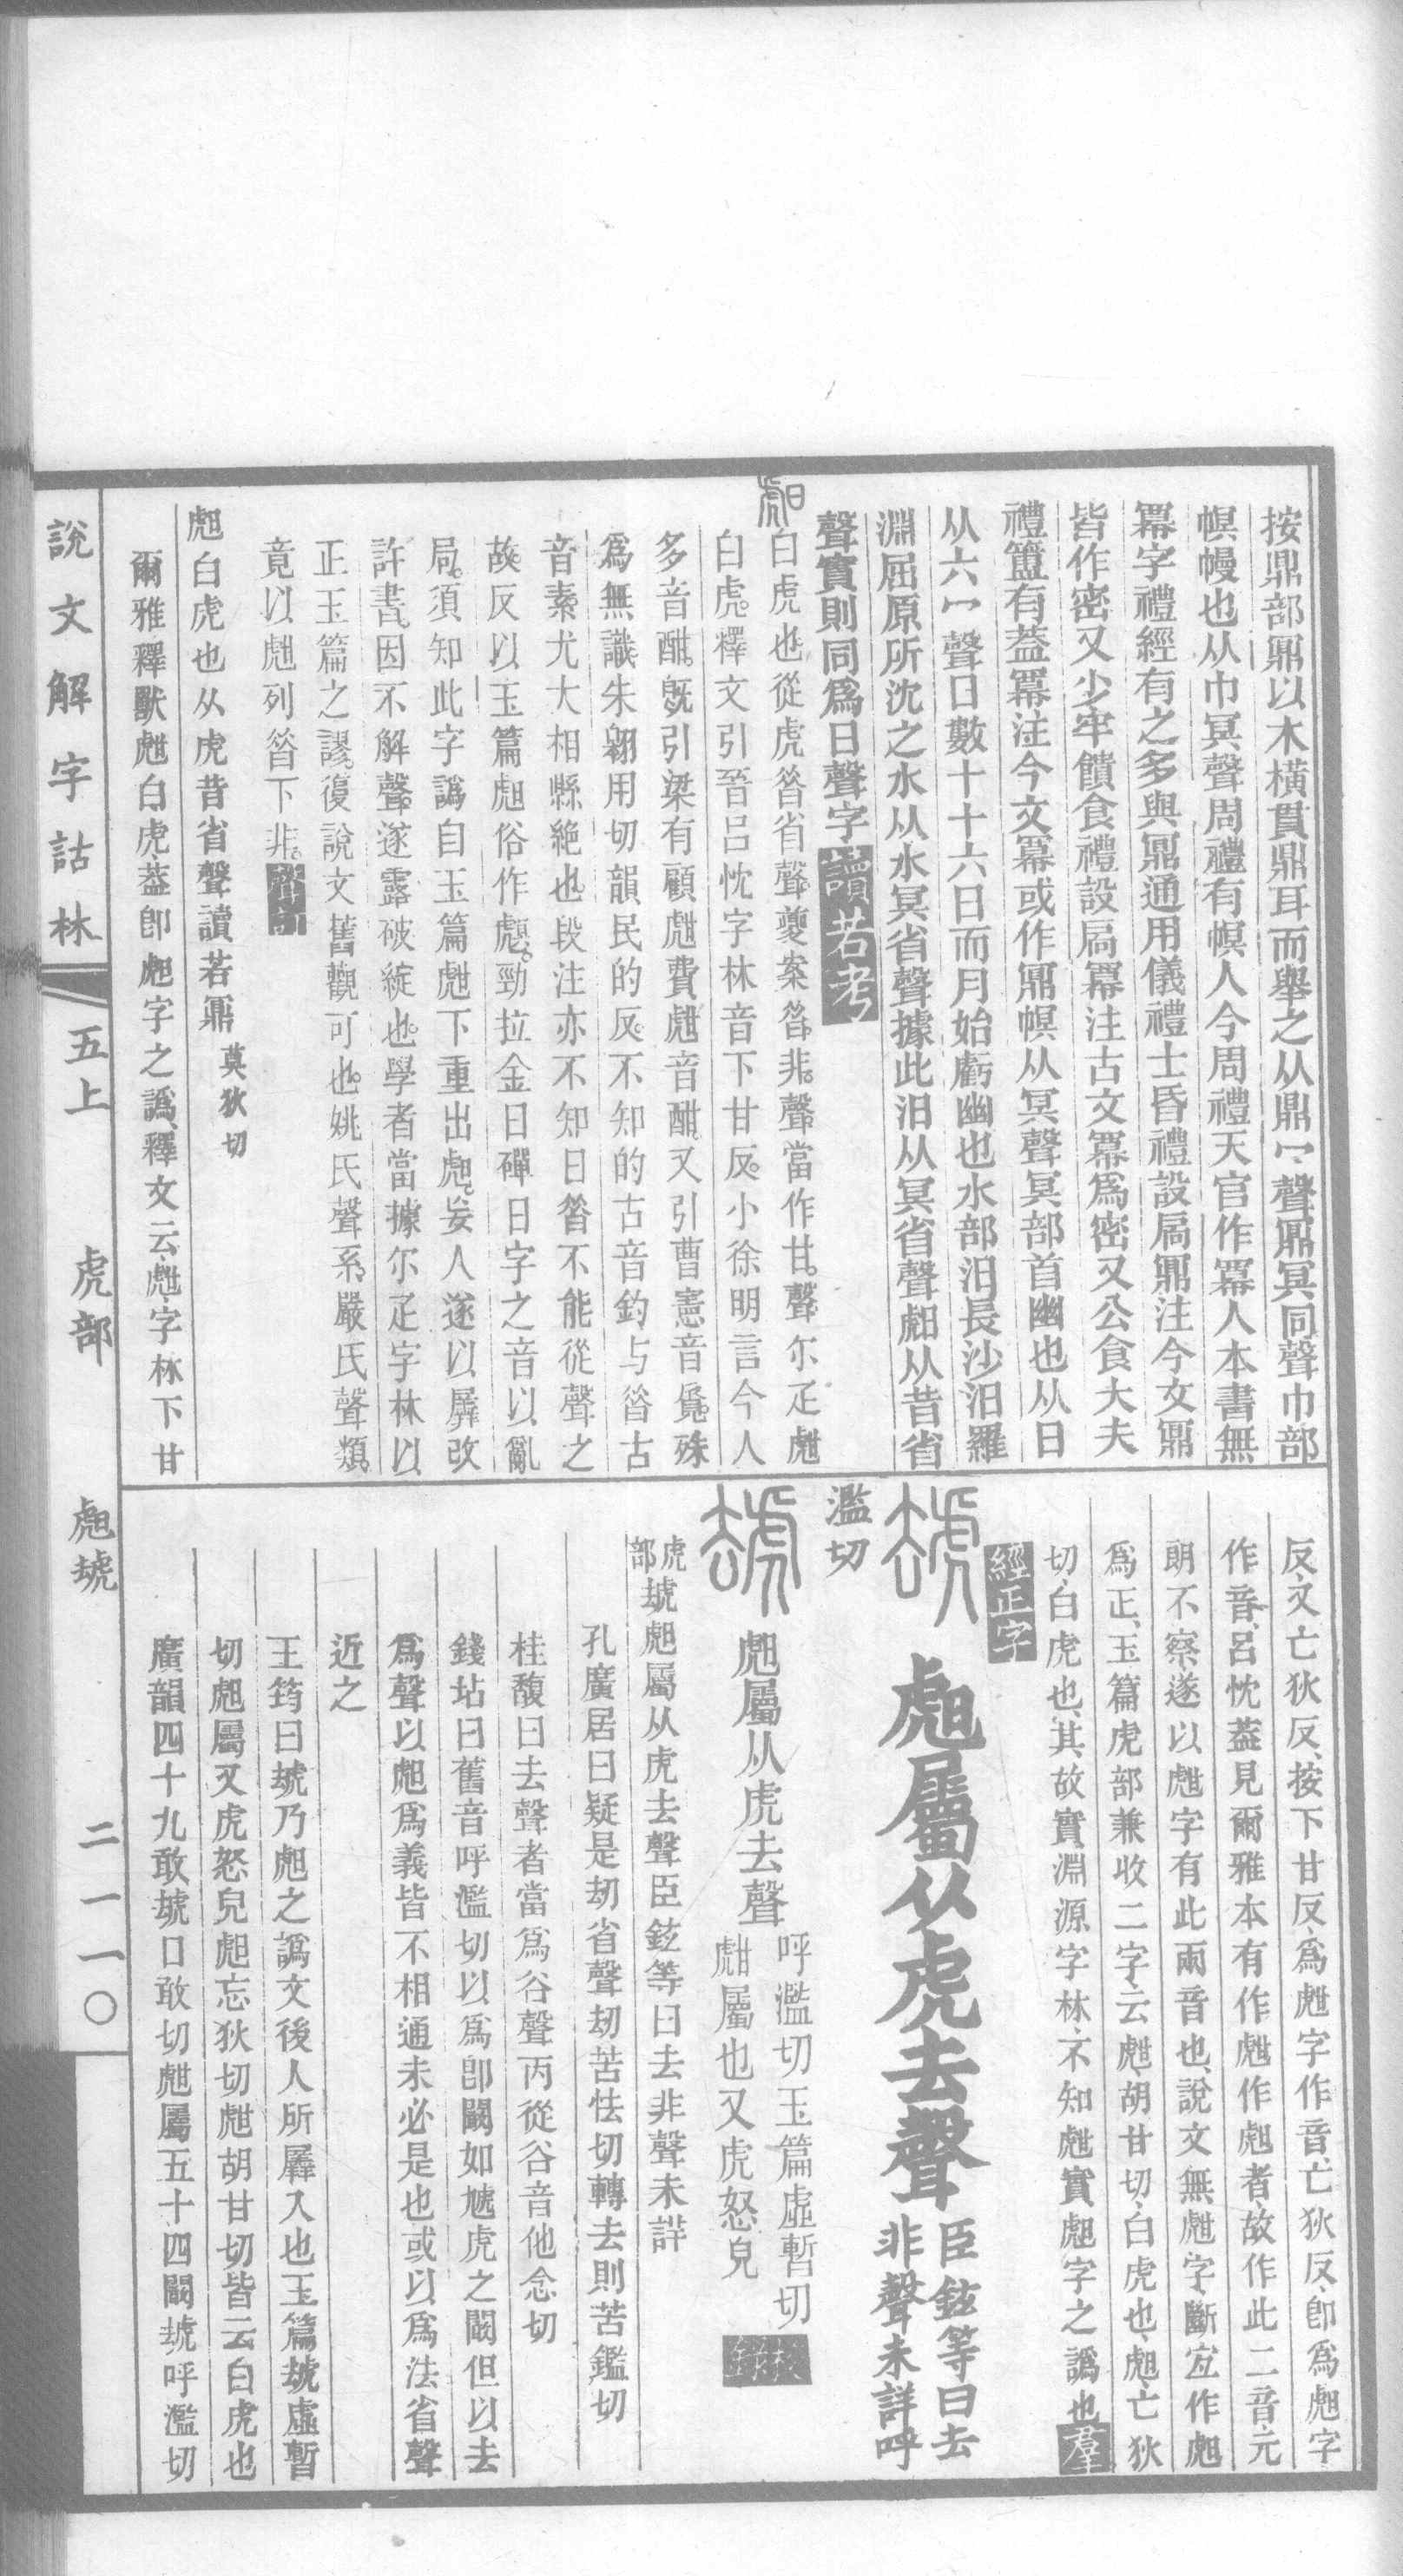 按鼎部鼏以木橫貫鼎耳而舉之从鼎冖聲鼏冥同聲巾部
幎幔也从巾冥聲周禮有幎人今周禮天官作冪人本書無
冪字禮經有之多與鼏通用儀禮士昏禮設扃鼏注今文鼏
皆作密又少牢饋食禮設扃冪注古文冪爲密又公食大夫
禮簠有蓋冪注今文冪或作鼏幎从冥聲冥部首幽也从日
从六冖聲日數十十六日而月始虧幽也水部汨長沙汨羅
淵屈原所沈之水从水冥省聲據此汨从冥省聲䖑从昔省
聲實則同爲日聲字讀若考
䖑白虎也從虎昝省聲夔案昝非聲當作甘聲尔疋甝
白虎釋文引晉呂忱字林音下甘反小徐明言今人
多音酣旣引梁有顧甝費甝音酣又引曹憲音覓殊
爲無識朱翱用切韻民的反不知的古音釣与昝古
音素尤大相縣絶也段注亦不知日昝不能從聲之
故反以玉篇䖑俗作䖑勁拉金日磾日字之音以亂
局須知此字譌自玉篇甝下重出䖑妄人遂以羼改
許書因不解聲遂露破綻也學者當據尔疋字林以
正玉篇之謬復說文舊觀可也姚氏聲系嚴氏聲類
竟以甝列昝下非
䖑白虎也从虎昔省聲讀若鼏莫狄切
爾雅釋獸甝白虎蓋卽䖑字之譌釋文云甝字林下甘
反又亡狄反按下甘反爲甝字作音亡狄反卽爲䖑字
作音呂忱蓋見爾雅本有作甝作䖑者故作此二音元
朗不察遂以甝字有此兩音也說文無甝字斷宐作䖑
爲正玉篇虎部兼收二字云甝胡甘切白虎也䖑亡狄
切白虎也其故實淵源字林不知甝實䖑字之譌也羣
經正字
䖑屬从虎去聲臣鉉等曰去非聲未詳呼
濫切
䖑屬从虎去聲呼濫切玉篇虛暫切甝屬也又虎怒皃
虎部虓䖑屬从虎去聲臣鉉等曰去非聲未詳
孔廣居曰疑是劫省聲劫苦怯切轉去則苦鑑切
桂馥曰去聲者當爲谷聲㐁從谷音他念切
錢坫曰舊音呼濫切以爲卽闞如虓虎之闞但以去
爲聲以䖑爲義皆不相通未必是也或以爲法省聲
近之
王筠曰𧇭乃䖑之譌文後人所羼入也玉篇𧇭虛暫
切䖑屬又虎怒皃䖑忘狄切甝胡甘切皆云白虎也
廣韻四十九敢𧇭口敢切甝屬五十四闞𧇭呼濫切
說文解字詁林 五上 虎部 䖑𧇭 二一一〇